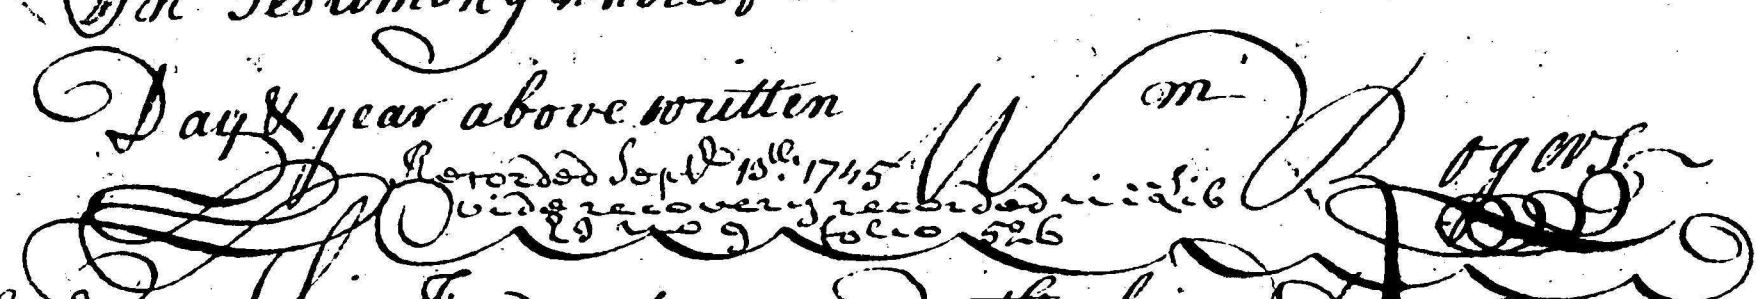 In Testimony whereof
Day & year above written Wm Rogers
Recorded Septbr 13th: 1745
vide recovery recorded in Lib
R9 no 9 folio 526